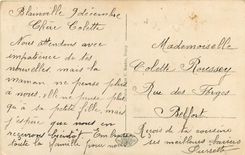 Blainville 9 décembre
Chère Colette
Nous attendons avec
impatience de tes
nouvelles, mais ta
maman ne pense plus
à nous, elle ne pense plus
qu'à sa petite fille, mais
j'espère que nous en
recevrons bientôt. Embrasse
toute la famille pour nous
Mademoiselle
Colette Roussey
Rue des Forges
Belfort
Reçois de ta cousine
ses meilleurs baisers
Pierrette